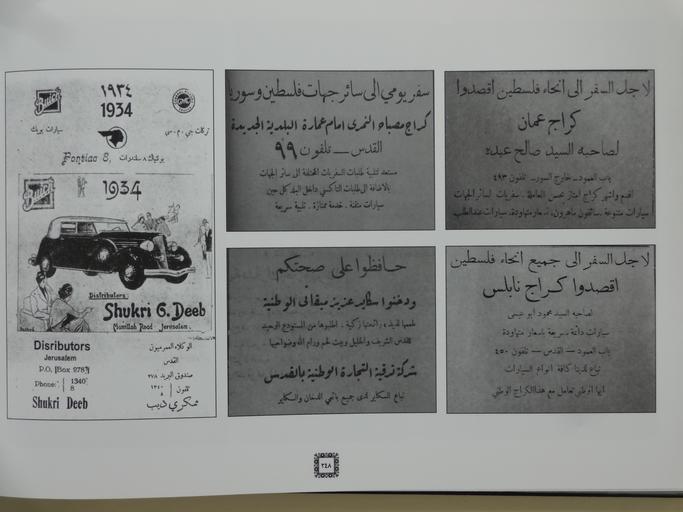 ١٩٣٤
1934
Buick
GMC
سيارات بويك
تركات جي . م . سي
Pontiac 8,
بونتياك ٨ سلندرات
Buick
1934
Distributers:
Shukri G. Deeb
Mamillah Road Jerusalem.
Disributors
Jerusalem
P.O. Box 278
Phone: 1340
8
Shukri Deeb
الوكلاء العموميون
القدس
صندوق البريد ٢٧٨
تلفون ١٣٤٠
٨
شكري ديب
سفر يومي الى سائر جهات فلسطين وسوريا
كراج مصباح النمري امام عمارة البلدية الجديدة
القدس — تلفون ٩٩
مستعد لتلبية طلبات السفريات المختلفة الى سائر الجهات
بالاضافة الى طلبات التاكسي داخل البلد كل حين
سيارات متقنة . خدمة ممتازة . تلبية سريعة
لاجل السفر الى انحاء فلسطين اقصدوا
كراج عمان
لصاحبه السيد صالح عبده
باب العمود – خارج السور – تلفون ٤٩٣
افخم واشهر كراج امتاز بحسن المعاملة . سفريات لسائر الجهات
سيارات متنوعة . سائقون ماهرون . اسعار متهاودة . سيارات عند الطلب
حافظوا على صحتكم
ودخنوا سكاير عزيز ميقاتي الوطنية
طعمها لذيذ ، رائحتها زكية . اطلبوها من المستودع الوحيد
للقدس الشريف والخليل وبيت لحم ورام الله وضواحيها
شركة ترقية التجارة الوطنية بالقدس
تباع السكاير لدى جميع بائعي الدخان والسكاير
لاجل السفر الى جميع انحاء فلسطين
اقصدوا كراج نابلس
لصاحبه السيد محمود ابو عيسى
سيارات دائمة سريعة باسعار متهاودة
باب العمود — القدس — تلفون ٤٥٠
تباع لدينا كافة انواع السيارات
ايها الوطني تعامل مع هذا الكراج الوطني
٢٤٨